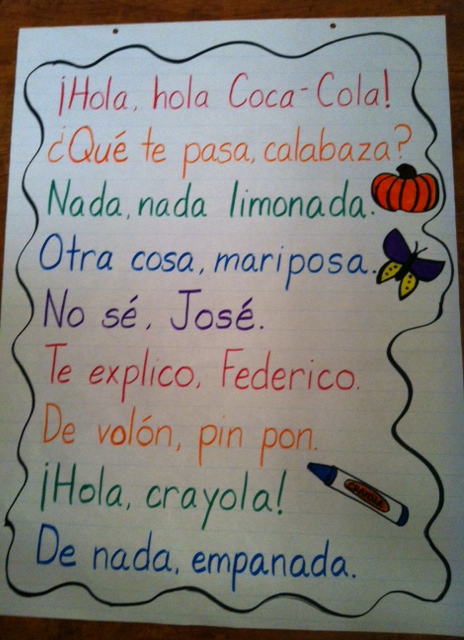 ¡Hola, hola Coca-Cola!
¿Qué te pasa, calabaza?
Nada, nada limonada.
Otra cosa, mariposa.
No sé, José.
Te explico, Federico.
De volón, pin pon.
¡Hola, crayola!
CRAYOLA
De nada, empanada.